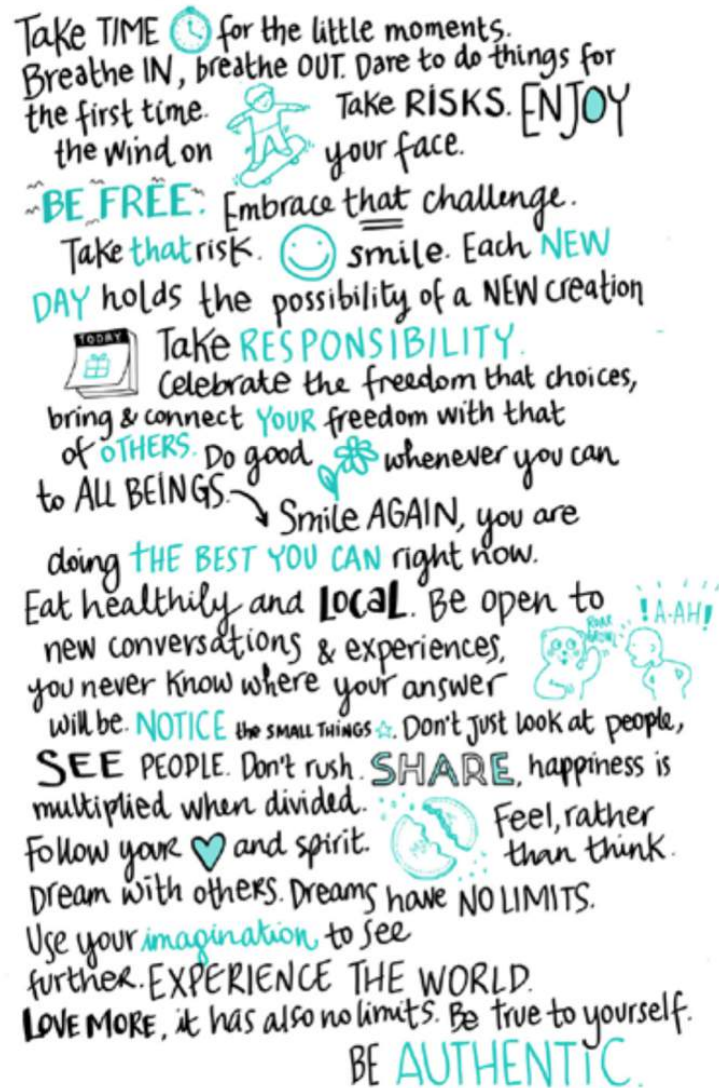 Take TIME for the little moments.
Breathe IN, breathe OUT. Dare to do things for
the first time. Take RISKS. ENJOY
the wind on your face.
BE FREE. Embrace that challenge.
Take that risk. smile. Each NEW
DAY holds the possibility of a NEW creation
TODAY
Take RESPONSIBILITY.
Celebrate the freedom that choices,
bring & connect YOUR freedom with that
of OTHERS. Do good whenever you can
to ALL BEINGS.
Smile AGAIN, you are
doing THE BEST YOU CAN right now.
Eat healthily and LOCAL. Be open to
!A-AH!
new conversations & experiences,
you never know where your answer
will be. NOTICE the SMALL THINGS. Don't just look at people,
SEE PEOPLE. Don't rush. SHARE, happiness is
multiplied when divided.
Feel, rather
Follow your and spirit.
than think.
Dream with others. Dreams have NO LIMITS.
Use your imagination, to see
further. EXPERIENCE THE WORLD.
LOVE MORE, it has also no limits. Be true to yourself.
BE AUTHENTIC.